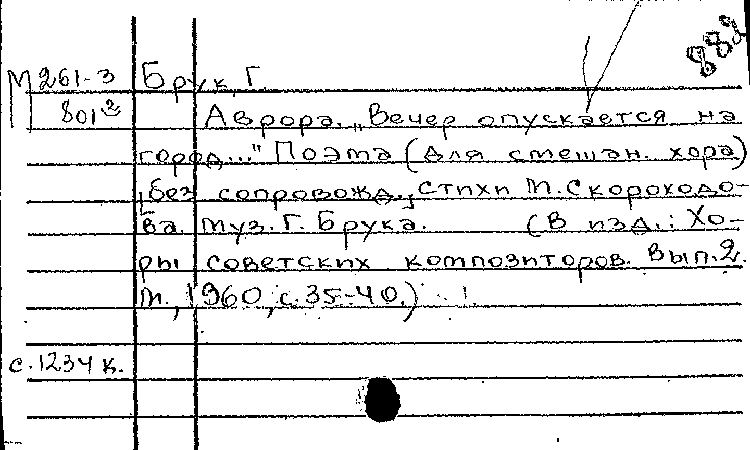 882
М 261-3 Брук, Г.
801² Аврора. „Вечер опускается на
город..." Поэта (для смешан. хора)
[без сопровожд.], стихи М. Скороходо-
ва. Муз. Г. Брука. (В изд.: Хо-
ры советских композиторов. Вып. 2.
М., 1960, с. 35-40.)
с. 1234 к.